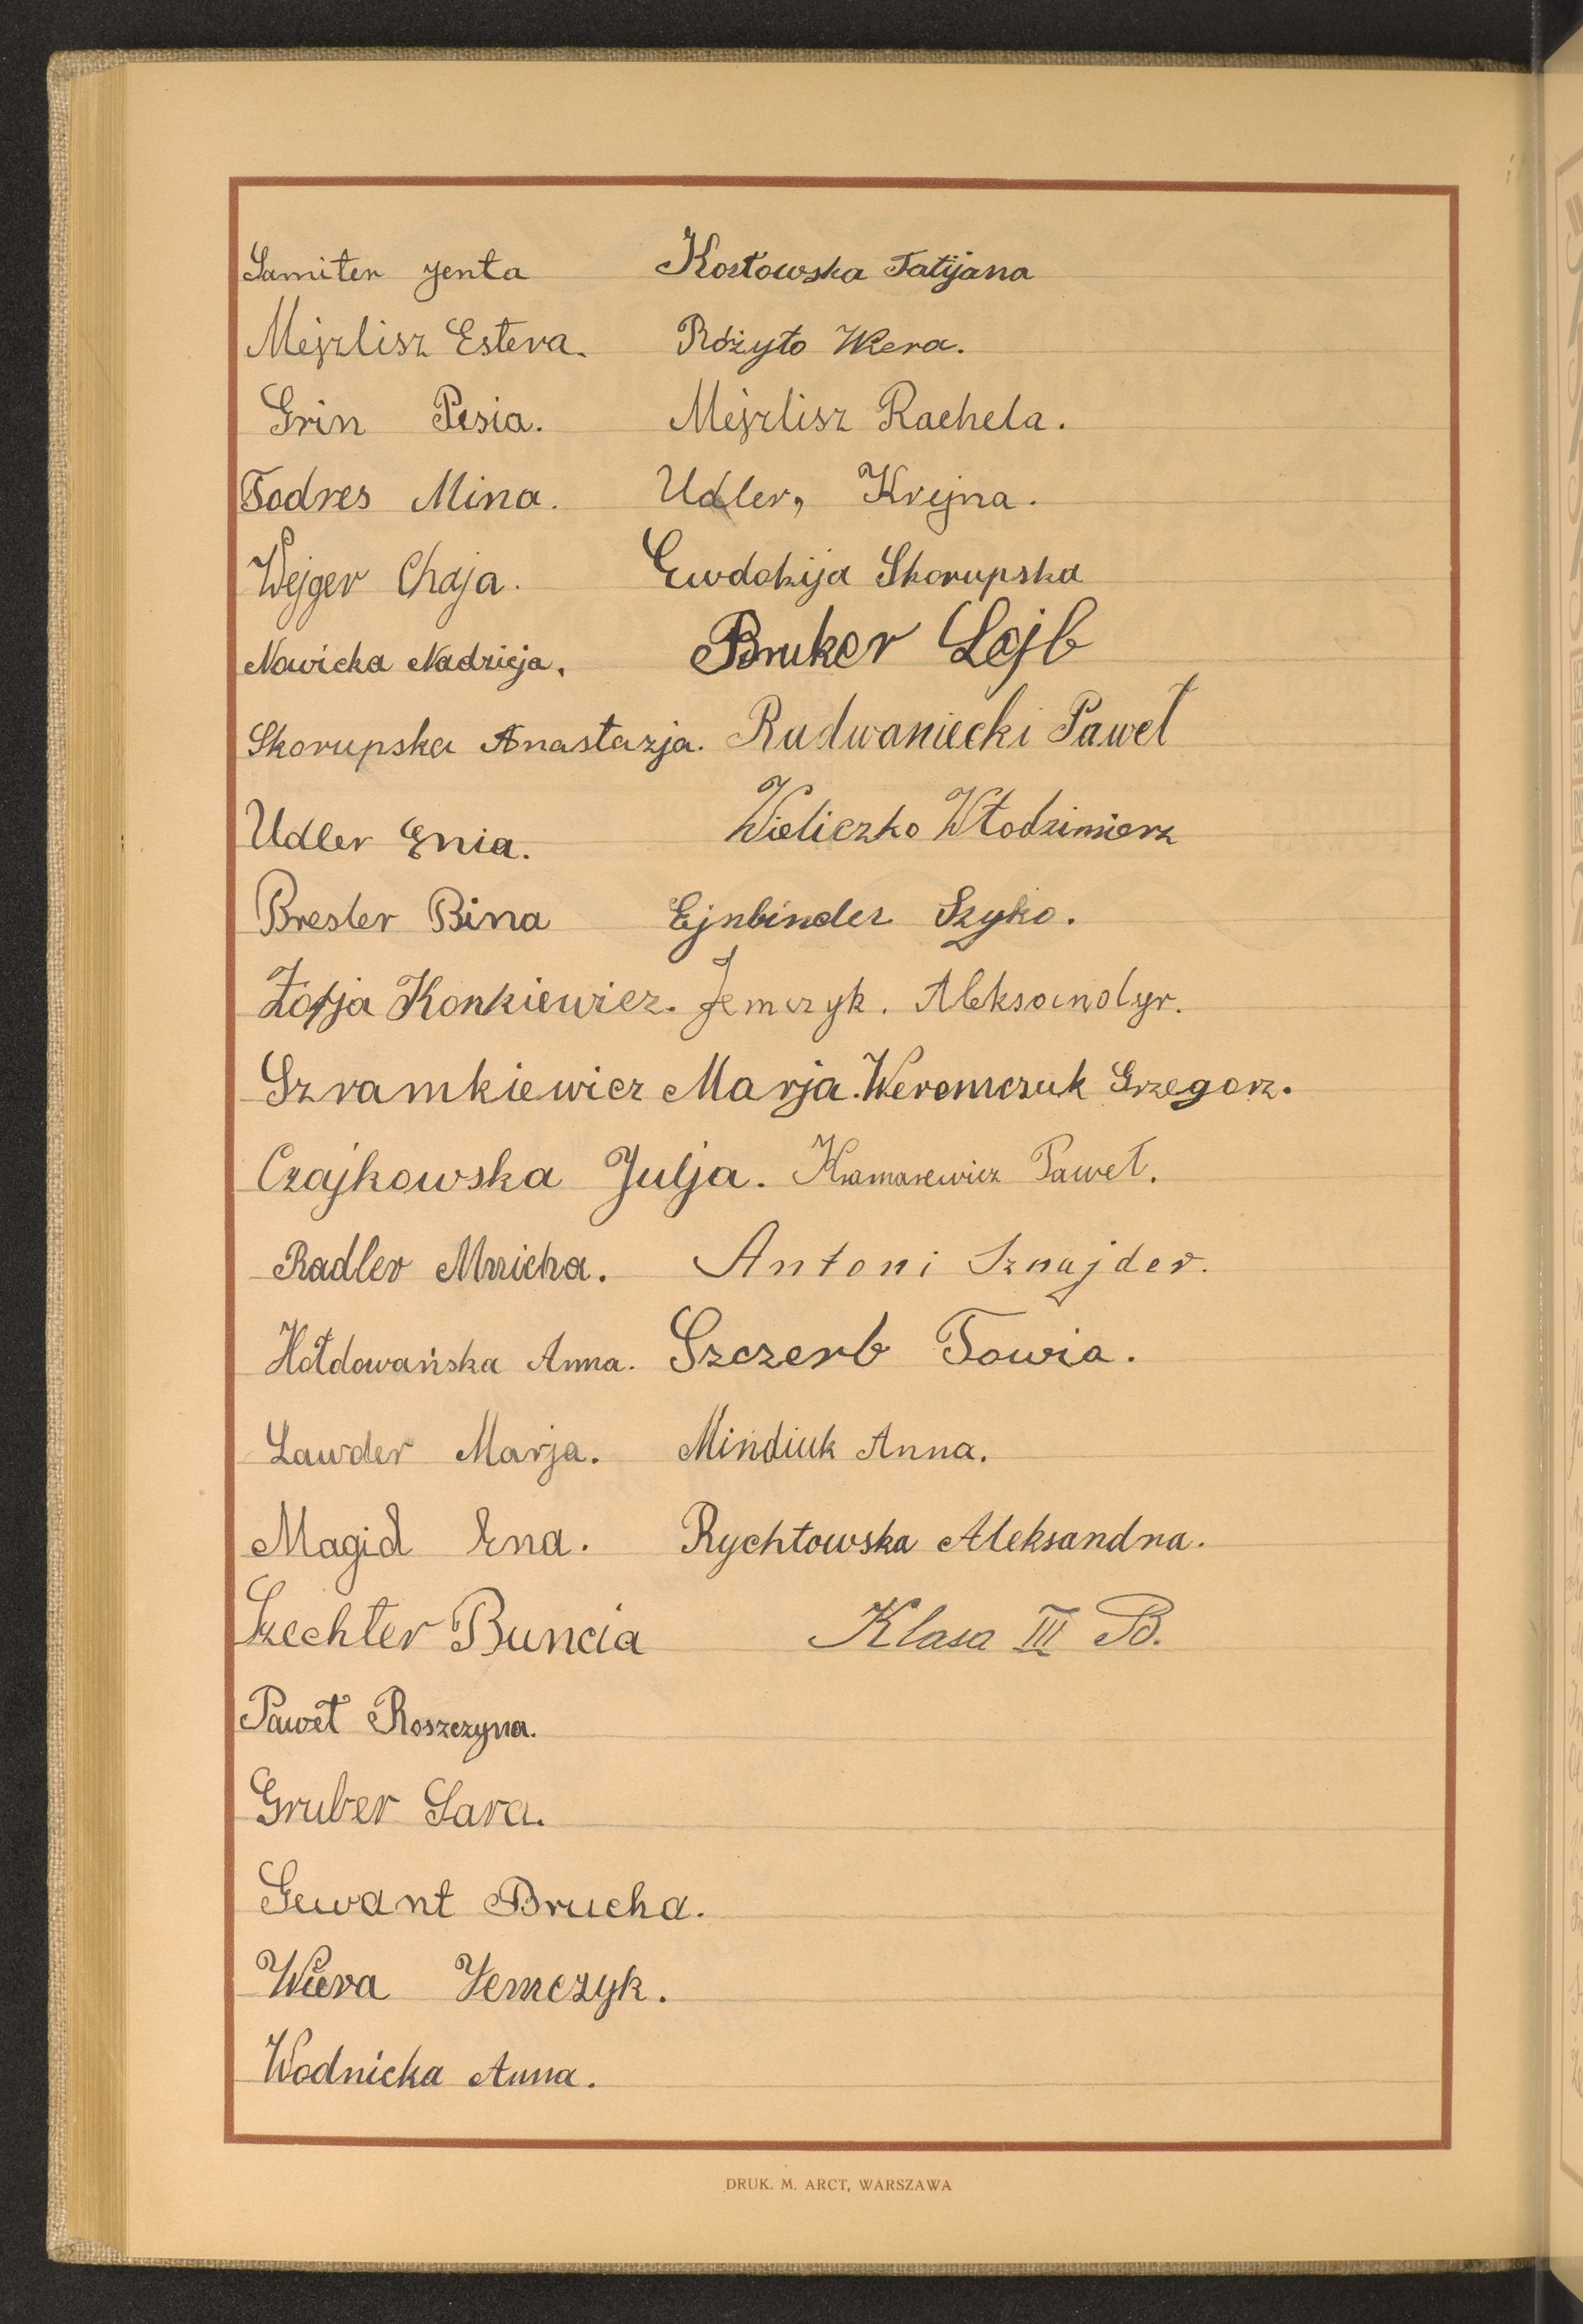 Lamiter Jenta Kozłowska Tatijana
Mejzlisz Estera. Różyło Wiera.
Grin Pesia. Mejzlisz Rachela.
Todres Mina. Udler, Krejna.
Wejger Chaja. Ewdokija Skorupska
Nowicka Nadzieja. Bruker Lejb
Skorupska Anastazja. Radwaniecki Paweł
Udler Enia. Wieliczko Włodzimierz
Bresler Bina Ejnbinder Szyko.
Zofja Konkiewicz. Jemczyk. Aleksandyr.
Szramkiewicz Marja. Weremczuk Grzegorz.
Czajkowska Julja. Kramarewicz Paweł.
Radler Mnicha. Antoni Sznajder.
Hołdowańska Anna. Szczerb Towia.
Lawder Marja. Mindiuk Anna.
Magid Ena. Rychtowska Aleksandra.
Szechter Buncia Klasa III B.
Paweł Roszczyna.
Gruber Sara.
Gewant Brucha.
Wiera Jemczyk.
Wodnicka Anna.
DRUK. M. ARCT, WARSZAWA